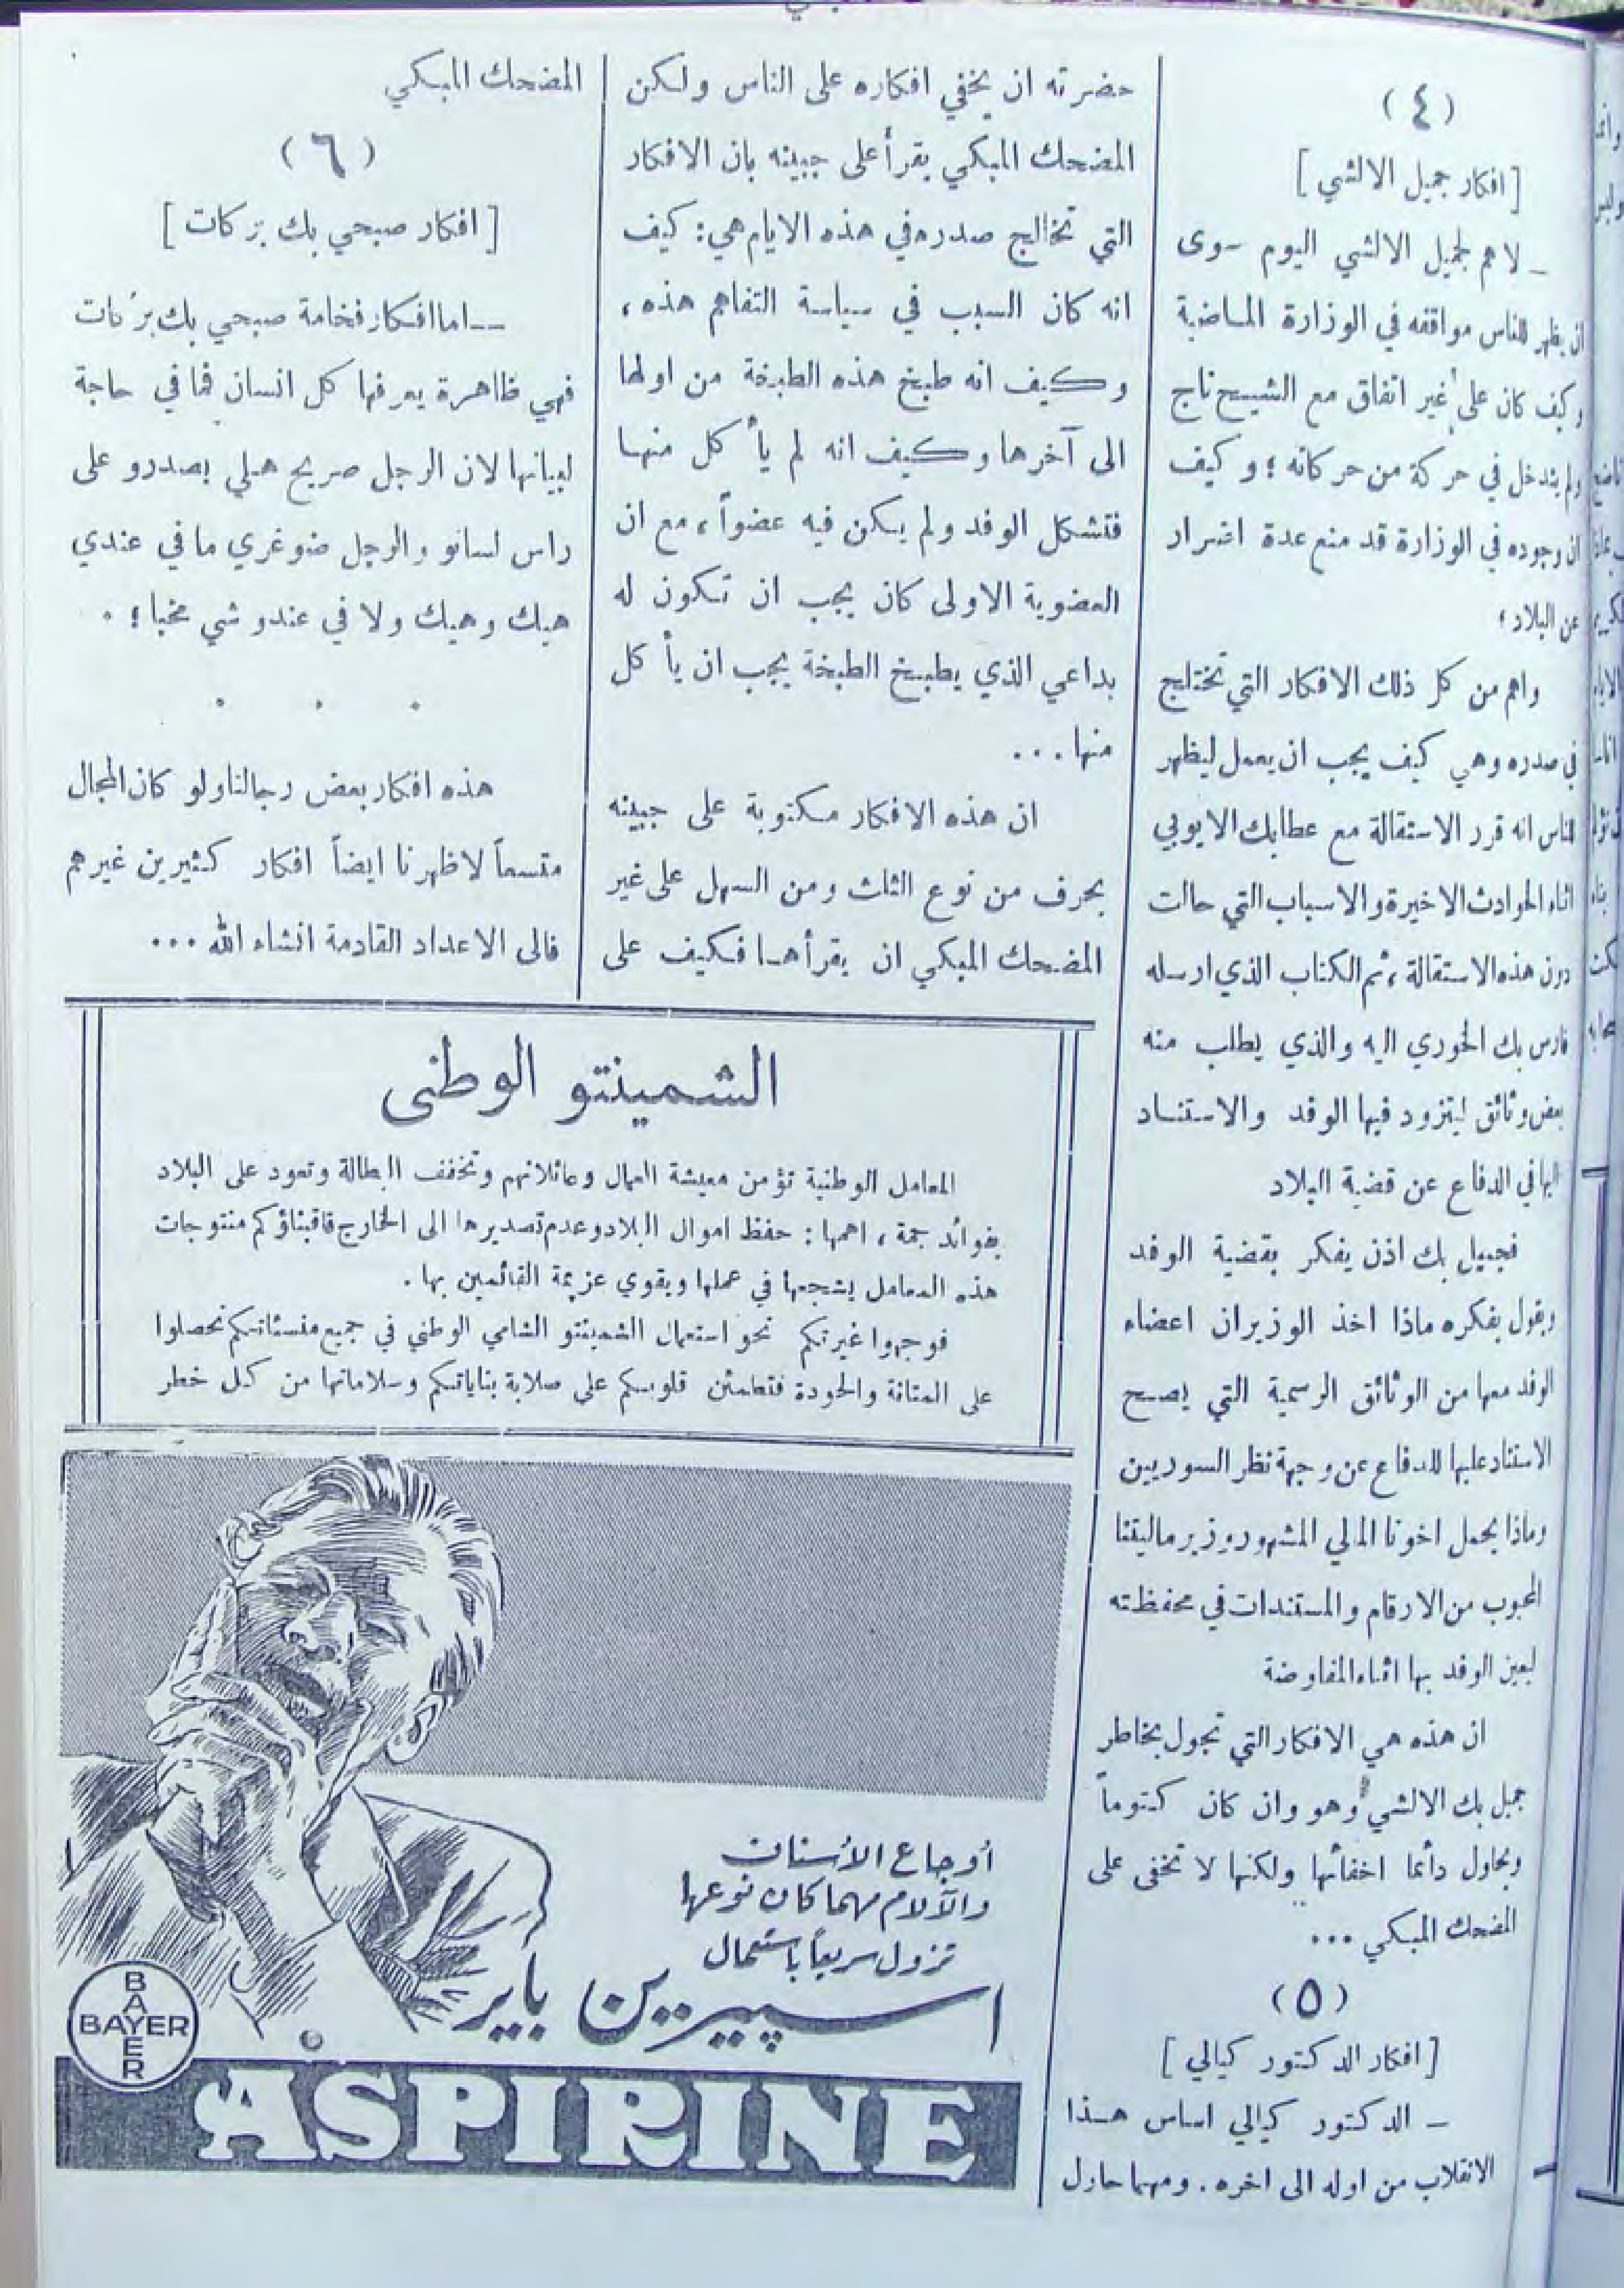 (٤)
[افكار جميل الالشي]
ـ لا هم لجميل الالشي اليوم سوى
ان يظهر للناس مواقفه في الوزارة الماضية
وكيف كان على غير اتفاق مع الشيخ تاج
ولم يتدخل في حركة من حركاته ؛ وكيف
ان وجوده في الوزارة قد منع عدة اضرار
عن البلاد ؛
واهم من كل ذلك الافكار التي تختلج
في صدره وهي كيف يجب ان يعمل ليظهر
للناس انه قرر الاستقالة مع عطا بك الايوبي
اثناء الحوادث الاخيرة والاسباب التي حالت
دون هذه الاستقالة ، ثم الكتاب الذي ارسله
فارس بك الخوري اليه والذي يطلب منه
بعض وثائق ليتزود فيها الوفد والاستناد
اليها في الدفاع عن قضية البلاد
فجميل بك اذن يفكر بقضية الوفد
ويقول بفكره ماذا اخذ الوزيران اعضاء
الوفد معها من الوثائق الرسمية التي يصح
الاستناد عليها للدفاع عن وجهة نظر السوريين
وماذا يحمل اخونا المالي المشهور وزير ماليتنا
المحبوب من الارقام والمستندات في محفظته
ليعين الوفد بها اثناء المفاوضة
ان هذه هي الافكار التي تجول بخاطر
جميل بك الالشي وهو وان كان كتوماً
ويحاول دائما اخفائها ولكنها لا تخفى على
المضحك المبكي ...
(٥)
[افكار الدكتور كيالي]
ـ الدكتور كيالي اساس هذا
الانقلاب من اوله الى اخره . ومهما حاول
حضرته ان يخفي افكاره على الناس ولكن
المضحك المبكي يقرأ على جبينه بان الافكار
التي تخالج صدره في هذه الايام هي : كيف
انه كان السبب في سياسة التفاهم هذه ،
وكيف انه طبخ هذه الطبخة من اولها
الى آخرها وكيف انه لم يأكل منها
فتشكل الوفد ولم يكن فيه عضواً ، مع ان
العضوية الاولى كان يجب ان تكون له
بداعي الذي يطبخ الطبخة يجب ان يأكل
منها ...
ان هذه الافكار مكتوبة على جبينه
بحرف من نوع الثلث ومن السهل على غير
المضحك المبكي ان يقرأها فكيف على
المضحك المبكي
(٦)
[افكار صبحي بك بركات]
ــ اما افكار فخامة صبحي بك بركات
فهي ظاهرة يعرفها كل انسان فما في حاجة
لبيانها لان الرجل صريح هيلي بصدرو على
راس لسانو والرجل ضوغري ما في عندي
هيك وهيك ولا في عندو شي مخبا ؛ .
. . .
هذه افكار بعض رجالنا ولو كان المجال
متسعاً لاظهرنا ايضاً افكار كثيرين غيرهم
فالى الاعداد القادمة انشاء الله ...
الشمينتو الوطني
المعامل الوطنية تؤمن معيشة العمال وعائلاتهم وتخفف البطالة وتعود على البلاد
بفوائد جمة ، اهمها : حفظ اموال البلاد وعدم تصديرها الى الخارج فاقبناؤكم منتوجات
هذه المعامل يشجعها في عملها ويقوي عزيمة القائمين بها .
فوجهوا غيرتكم نحو استعمال الشمينتو الشامي الوطني في جميع منشئاتكم تحصلوا
على المتانة والجودة فتطمئن قلوبكم على صلابة بناياتكم وسلاماتها من كل خطر
أوجاع الأسنان
والآلام مهما كان نوعها
تزول سريعاً باستعمال
اسپيرين باير
BAYER
BAYER
ASPIRINE